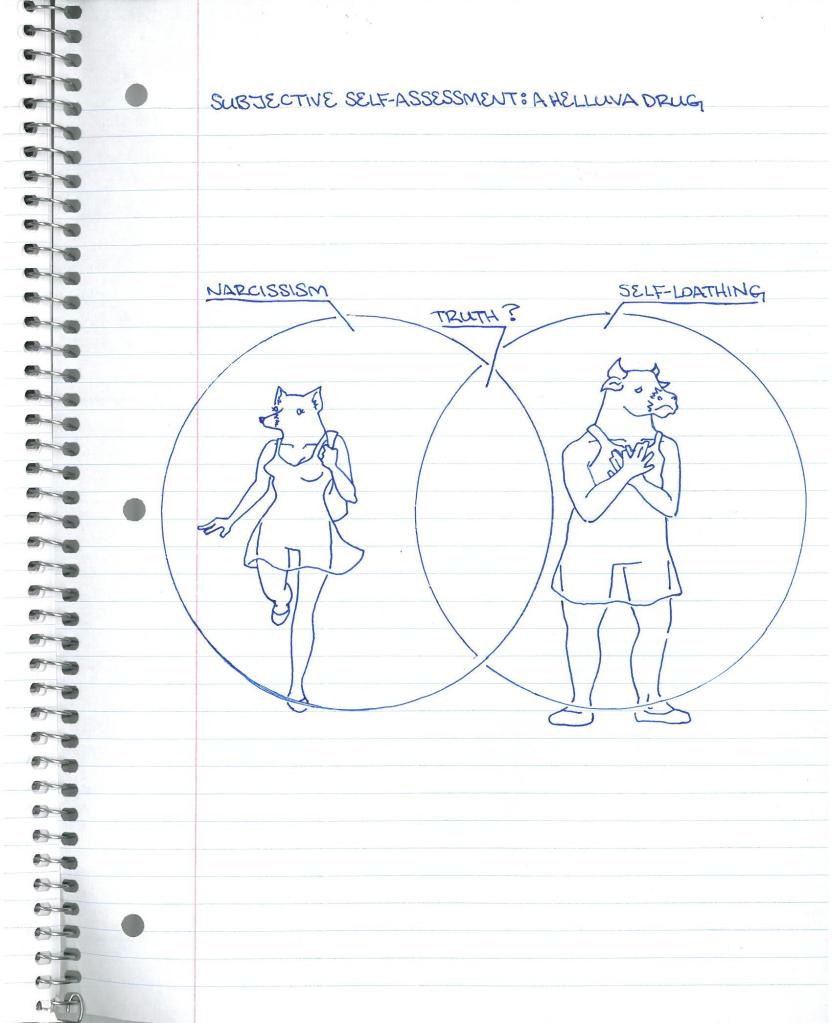 SUBJECTIVE SELF-ASSESSMENT: A HELLUVA DRUG
NARCISSISM
TRUTH?
SELF-LOATHING